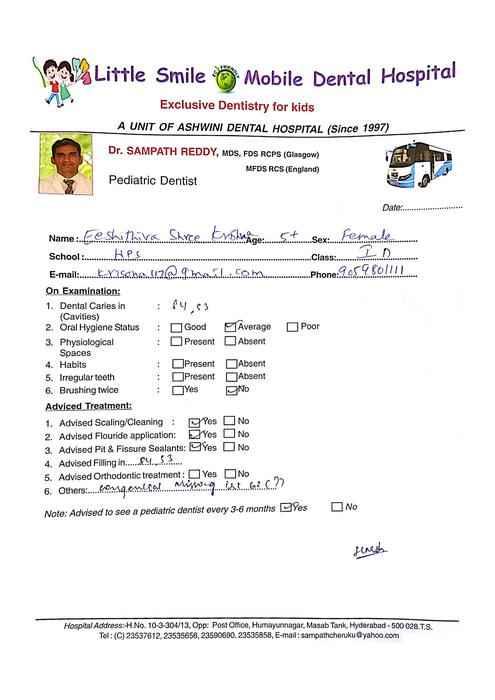 Little Smile Mobile Dental Hospital
Exclusive Dentistry for kids
A UNIT OF ASHWINI DENTAL HOSPITAL (Since 1997)
Dr. SAMPATH REDDY, MDS, FDS RCPS (Glasgow)
MFDS RCS (England)
Pediatric Dentist
Date:
Name : Shree Age: 5+ Sex: Female
School : HPS Class: I D
E-mail: Phone: 9059801111
On Examination:
1. Dental Caries in : 84, 53
(Cavities)
2. Oral Hygiene Status : Good Average Poor
3. Physiological : Present Absent
Spaces
4. Habits : Present Absent
5. Irregular teeth : Present Absent
6. Brushing twice : Yes No
Adviced Treatment:
1. Advised Scaling/Cleaning : Yes No
2. Advised Flouride application: Yes No
3. Advised Pit & Fissure Sealants: Yes No
4. Advised Filling in 84, 53
5. Advised Orthodontic treatment : Yes No
6. Others: missing
Note: Advised to see a pediatric dentist every 3-6 months Yes No
Hospital Address:-H.No. 10-3-304/13, Opp: Post Office, Humayunnagar, Masab Tank, Hyderabad - 500 028.T.S.
Tel : (C) 23537612, 23535658, 23590690, 23535858, E-mail : sampathcheruku@yahoo.com